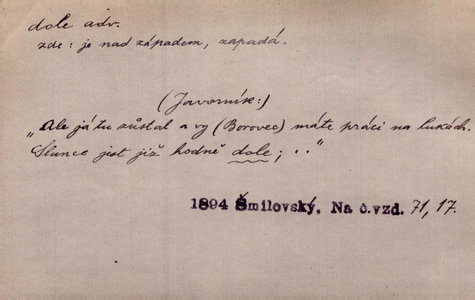 dole adv.
zde: je nad západem, zapadá.
(Javorník:)
„Ale já tu zůstal a vy (Borovec) máte práci na lukách.
Slunce jest již hodně dole; . ."
1894 Šmilovský, Na č.vzd. 71, 17.